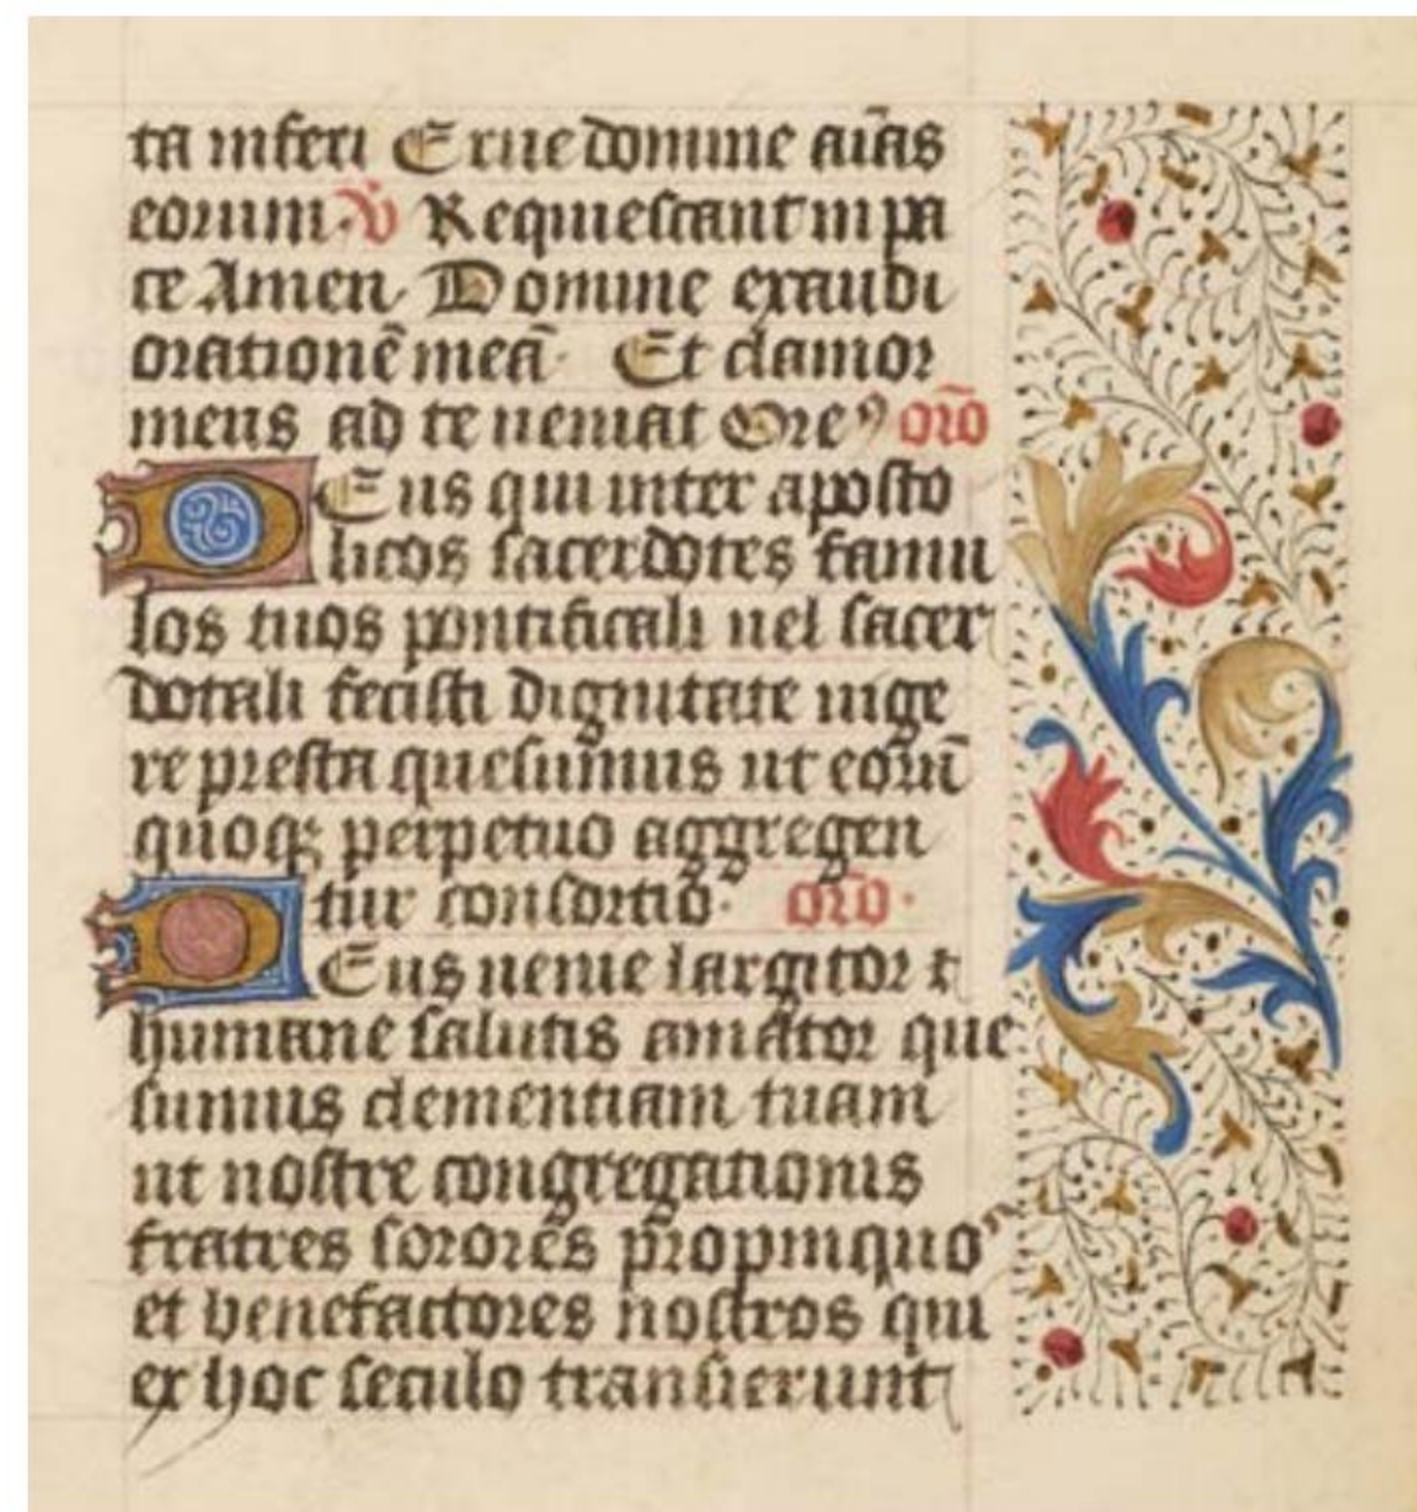 ta inferi Erue domine aīas
eorum. v̄ Requiescant in pa
ce Amen Domine exaudi
orationē meā· Et clamor
meus ad te ueniat Oreꝰ orō
DEus qui inter aposto
licos sacerdotes famu
los tuos pontificali uel sacer
dotali fecisti dignitate uige
re presta quesumus ut eorū
quoqꝫ perpetuo aggregen
tur consortio· orō·
DEus uenie largitor ⁊
humane salutis amator que
sumus clementiam tuam
ut nostre congregationis
fratres sorores propinquoˢ
et benefactores nostros qui
ex hoc seculo transierunt